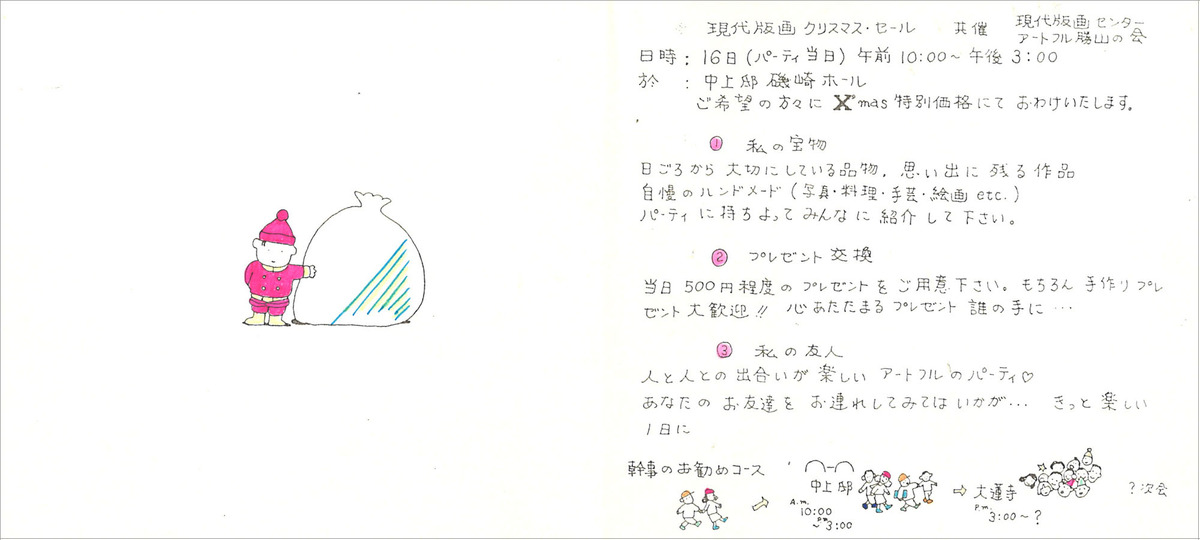 現代版画 クリスマス・セール 共催 現代版画センター
アートフル勝山の会
日時：16日(パーティ当日) 午前10:00～午後3:00
於 ：中上邸 磯崎ホール
ご希望の方々に X'mas 特別価格にて おわけいたします。
① 私の宝物
日ごろから 大切にしている品物, 思い出に 残る 作品
自慢のハンドメード (写真・料理・手芸・絵画 etc.)
パーティ に持ちよって みんなに 紹介 して 下さい。
② プレゼント 交換
当日 500円程度の プレゼントを ご用意下さい。もちろん 手作りプレ
ゼント 大歓迎!! 心あたたまる プレゼント 誰の手に…
③ 私の友人
人と人との 出合いが 楽しい アートフルのパーティ♡
あなたの お友達を お連れしてみては いかが… きっと 楽しい
1日に
幹事のお勧めコース
中上邸
A.m.
10:00
P.m.
～3:00
⇨ 大蓮寺
P.m.
3:00～?
?次会